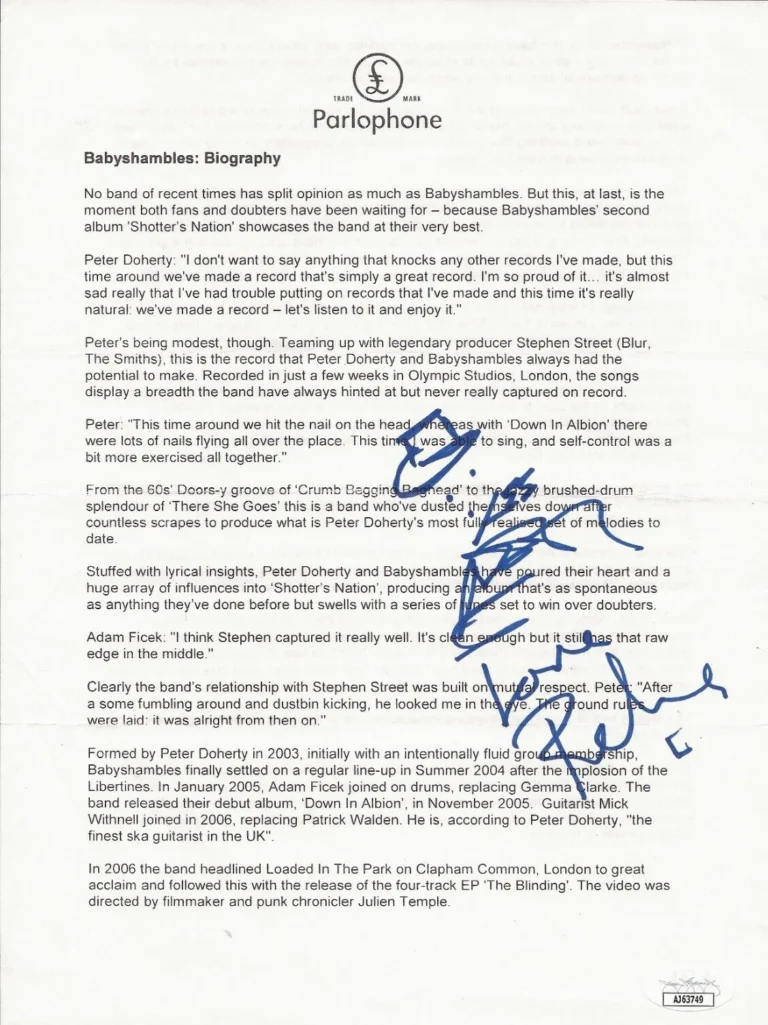 £
TRADE MARK
Parlophone
Babyshambles: Biography
No band of recent times has split opinion as much as Babyshambles. But this, at last, is the
moment both fans and doubters have been waiting for – because Babyshambles' second
album 'Shotter's Nation' showcases the band at their very best.
Peter Doherty: "I don't want to say anything that knocks any other records I've made, but this
time around we've made a record that's simply a great record. I'm so proud of it... it's almost
sad really that I've had trouble putting on records that I've made and this time it's really
natural: we've made a record – let's listen to it and enjoy it."
Peter's being modest, though. Teaming up with legendary producer Stephen Street (Blur,
The Smiths), this is the record that Peter Doherty and Babyshambles always had the
potential to make. Recorded in just a few weeks in Olympic Studios, London, the songs
display a breadth the band have always hinted at but never really captured on record.
Peter: "This time around we hit the nail on the head, whereas with 'Down In Albion' there
were lots of nails flying all over the place. This time I was able to sing, and self-control was a
bit more exercised all together."
From the 60s' Doors-y groove of 'Crumb Begging Baghead' to the jazzy brushed-drum
splendour of 'There She Goes' this is a band who've dusted themselves down after
countless scrapes to produce what is Peter Doherty's most fully realised set of melodies to
date.
Stuffed with lyrical insights, Peter Doherty and Babyshambles have poured their heart and a
huge array of influences into 'Shotter's Nation', producing an album that's as spontaneous
as anything they've done before but swells with a series of tunes set to win over doubters.
Adam Ficek: "I think Stephen captured it really well. It's clean enough but it still has that raw
edge in the middle."
Love
Clearly the band's relationship with Stephen Street was built on mutual respect. Peter: "After
a some fumbling around and dustbin kicking, he looked me in the eye. The ground rules
were laid: it was alright from then on."
Formed by Peter Doherty in 2003, initially with an intentionally fluid group membership,
Babyshambles finally settled on a regular line-up in Summer 2004 after the implosion of the
Libertines. In January 2005, Adam Ficek joined on drums, replacing Gemma Clarke. The
band released their debut album, 'Down In Albion', in November 2005. Guitarist Mick
Withnell joined in 2006, replacing Patrick Walden. He is, according to Peter Doherty, "the
finest ska guitarist in the UK".
In 2006 the band headlined Loaded In The Park on Clapham Common, London to great
acclaim and followed this with the release of the four-track EP 'The Blinding'. The video was
directed by filmmaker and punk chronicler Julien Temple.
AJ63749